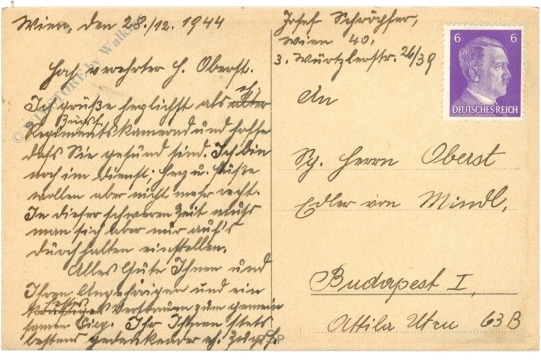 Wien, den 28./12. 1944
Hoch verehrter H. Oberst.
Ich grüße herzlichst als alter
Regimentskamerad und hoffe
daß Sie gesund sind. Ich bin
noch im Dienst. Herz u. Füße
wollen aber nicht mehr recht.
In dieser schweren Zeit muß
man sich aber nur auf's
durchhalten einstellen.
Alles Gute Ihnen und
Ihren Angehörigen und ein
Vertrauen zum gemein
samen Sieg. Ihr Ihnen stets
bestens gedenkender
Josef Schröpfer,
Wien 40,
3. Würtzlerstr. 26/39
An
Herrn Oberst
Edler von Mindl,
Budapest I,
Attila Uten 63B
6 6
DEUTSCHES REICH